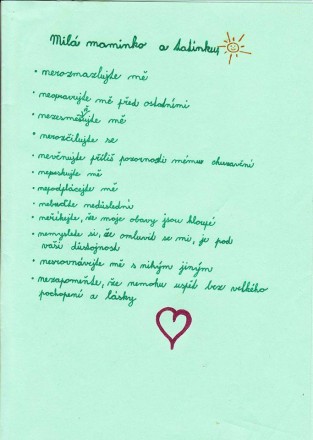 Milá maminko a tatínku,
• nerozmazlujte mě
• neopravujte mě před ostatními
• nezesměšňujte mě
• nerozčilujte se
• nevěnujte příliš pozornosti mému churavění
• nepeskujte mě
• nepodplácejte mě
• nebuďte nedůslední
• neříkejte, že moje obavy jsou hloupé
• nemyslete si, že omluvit se mi, je pod
vaši důstojnost
• nesrovnávejte mě s nikým jiným
• nezapomeňte, že nemohu uspět bez velkého
pochopení a lásky